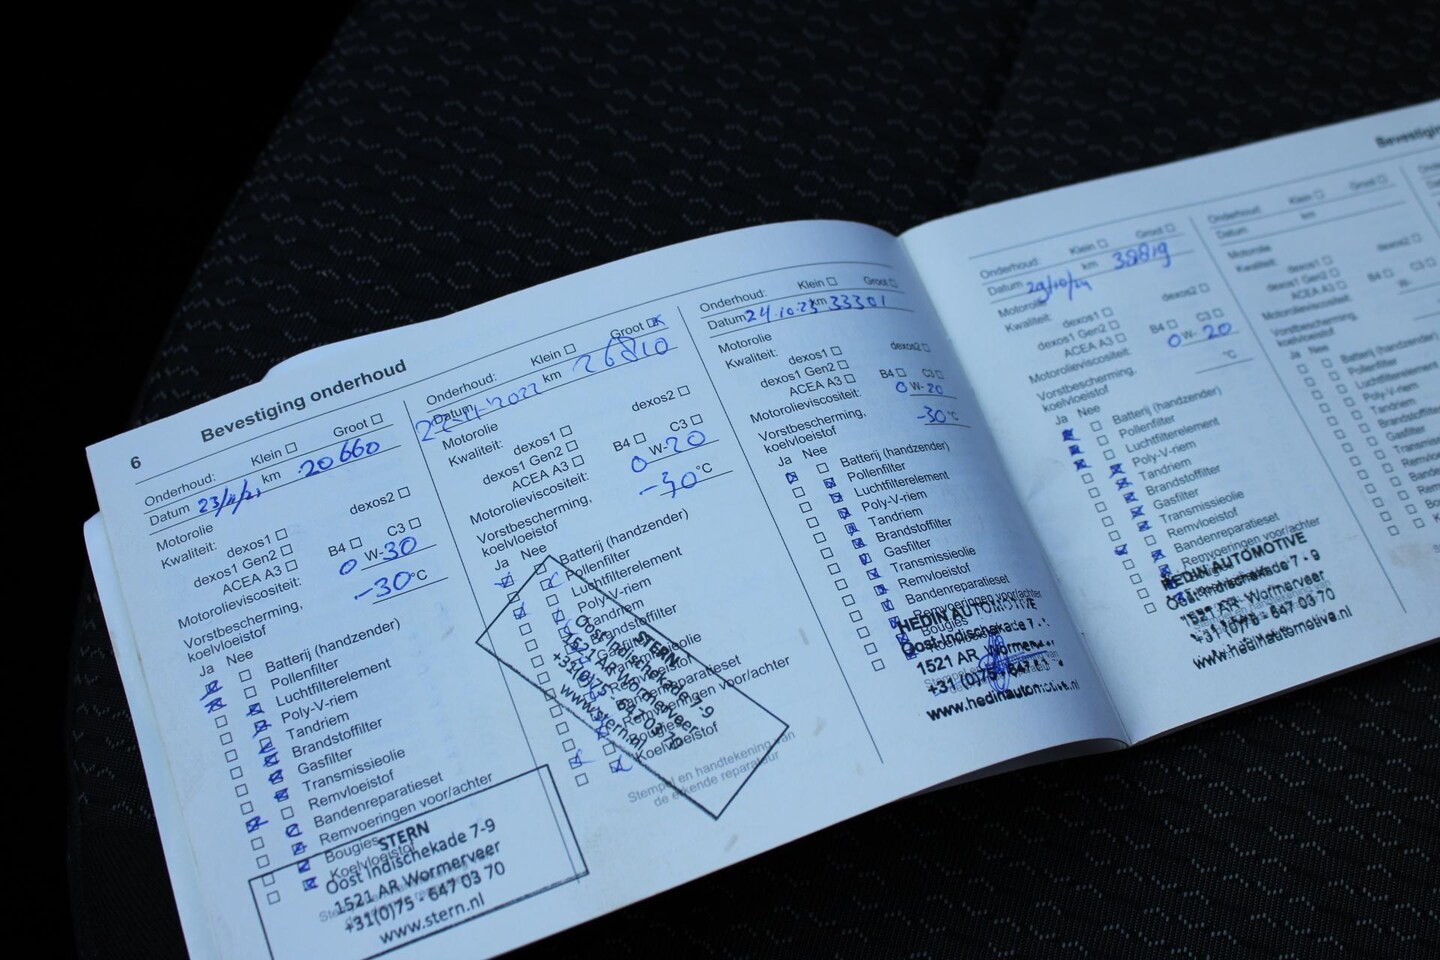 6
Bevestiging onderhoud
Onderhoud: Klein Groot
Datum 23/11/21 km 20660
Motorolie
Kwaliteit: dexos1 dexos2
dexos1 Gen2
ACEA A3 B4 C3
Motorolieviscositeit: 0 W-30
Vorstbescherming,
koelvloeistof -30°C
Ja Nee
Batterij (handzender)
Pollenfilter
Luchtfilterelement
Poly-V-riem
Tandriem
Brandstoffilter
Gasfilter
Transmissieolie
Remvloeistof
Bandenreparatieset
Remvoeringen voor/achter
Bougies
Koelvloeistof
STERN
Oost Indischekade 7-9
1521 AR Wormerveer
+31(0)75 - 647 03 70
www.stern.nl
Onderhoud: Klein Groot
Datum 2022 km 26810
Motorolie
Kwaliteit: dexos1 dexos2
dexos1 Gen2
ACEA A3 B4 C3
Motorolieviscositeit: 0 W-20
Vorstbescherming,
koelvloeistof -30°C
Ja Nee
Batterij (handzender)
Pollenfilter
Luchtfilterelement
Poly-V-riem
Tandriem
Brandstoffilter
Gasfilter
Transmissieolie
Remvloeistof
Bandenreparatieset
Remvoeringen voor/achter
Bougies
Koelvloeistof
Stempel en handtekening van
de erkende reparateur
STERN
Oost Indischekade 7-9
1521 AR Wormerveer
+31(0)75 - 647 03 70
www.stern.nl
Onderhoud: Klein Groot
Datum 24.10.23 km 33301
Motorolie
Kwaliteit: dexos1 dexos2
dexos1 Gen2
ACEA A3 B4 C3
Motorolieviscositeit: 0 W-20
Vorstbescherming,
koelvloeistof -30°C
Ja Nee
Batterij (handzender)
Pollenfilter
Luchtfilterelement
Poly-V-riem
Tandriem
Brandstoffilter
Gasfilter
Transmissieolie
Remvloeistof
Bandenreparatieset
Remvoeringen voor/achter
Bougies
HEDIN AUTOMOTIVE
Oost-Indischekade 7
1521 AR Wormer
+31 (0)75 - 647
www.hedinautomotive.nl
Onderhoud: Klein Groot
Datum 29/10/24 km 38819
Motorolie
Kwaliteit: dexos1 dexos2
dexos1 Gen2
ACEA A3 B4 C3
Motorolieviscositeit: 0 W-20
Vorstbescherming,
koelvloeistof °C
Ja Nee
Batterij (handzender)
Pollenfilter
Luchtfilterelement
Poly-V-riem
Tandriem
Brandstoffilter
Gasfilter
Transmissieolie
Remvloeistof
Bandenreparatieset
Remvoeringen voor/achter
HEDIN AUTOMOTIVE
Oost-Indischekade 7 - 9
1521 AR Wormerveer
+31 (0)75 - 647 03 70
www.hedinautomotive.nl
Onderhoud: Klein Groot
Datum km
Motorolie
Kwaliteit: dexos1 dexos2
dexos1 Gen2
ACEA A3 B4 C3
Motorolieviscositeit: W-
Vorstbescherming,
koelvloeistof
Ja Nee
Batterij (handzender)
Pollenfilter
Luchtfilterelement
Poly-V-riem
Tandriem
Brandstoffilter
Gasfilter